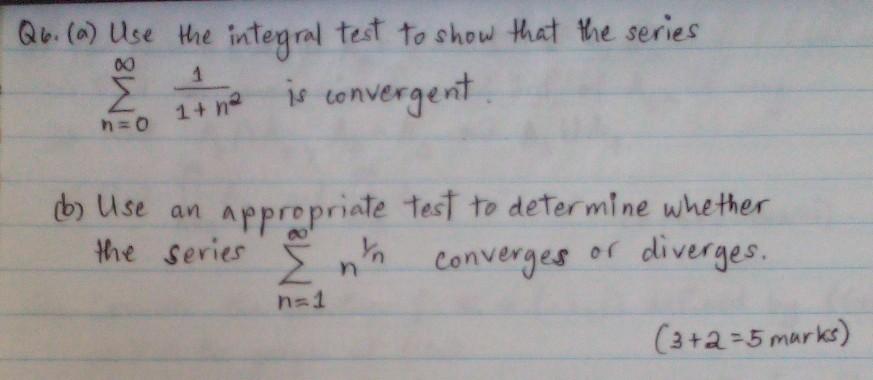 Q6. (a) Use the integral test to show that the series
∞
∑ 1/(1+n²) is convergent.
n=0
(b) Use an appropriate test to determine whether
the series ∑ n^(1/n) converges or diverges.
∞
n=1
(3+2=5 marks)